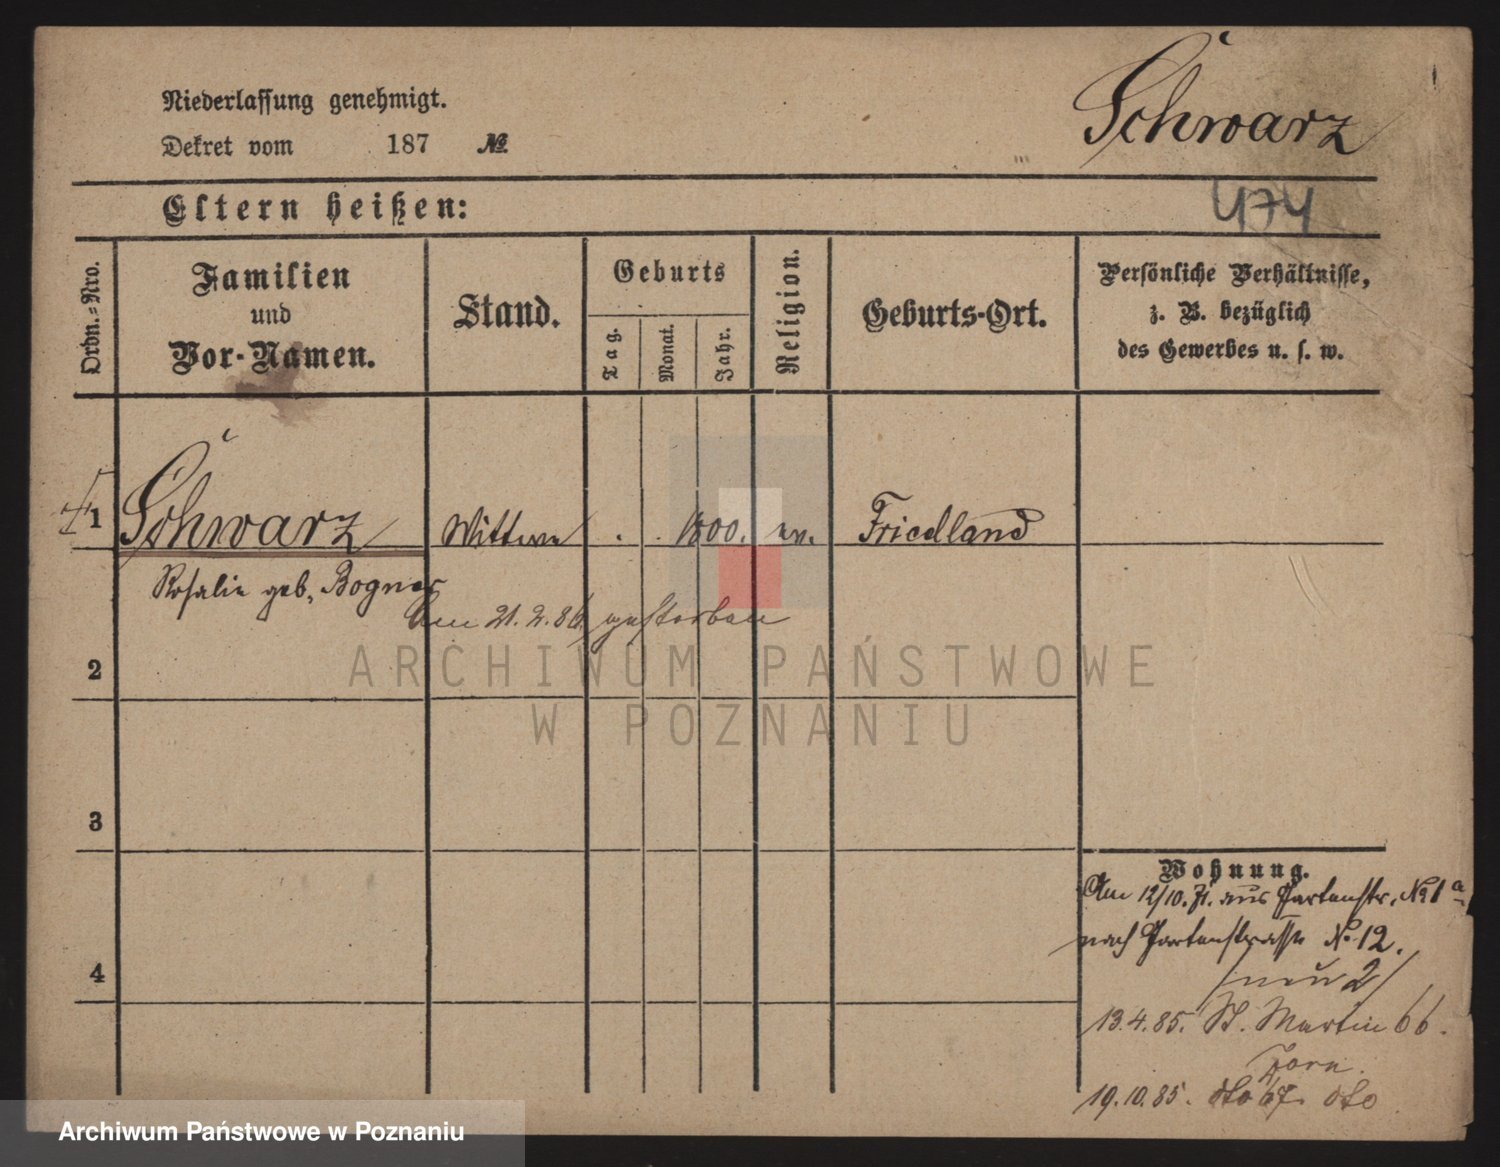 Niederlassung genehmigt.
Dekret vom 187 №
Schwarz
Eltern heißen:
474
Ordn.-Nro.
Familien
und
Vor-Namen.
Stand.
Geburts
Tag.
Monat.
Jahr.
Religion.
Geburts-Ort.
Persönliche Verhältnisse,
z. B. bezüglich
des Gewerbes u. s. w.
1 Schwarz Wittwe . . 1800. ev. Friedland
Rosalie geb. Bogner
Am 21.2.86. gestorben
2
ARCHIWUM PAŃSTWOWE
W POZNANIU
3
Wohnung.
Am 12/10. 71. aus Gartenstr. № 1a
nach Gartenstrasse № 12.
/neu 2/
4
13.4.85. St. Martin 66.
19.10.85. dto 67. dto
Archiwum Państwowe w Poznaniu